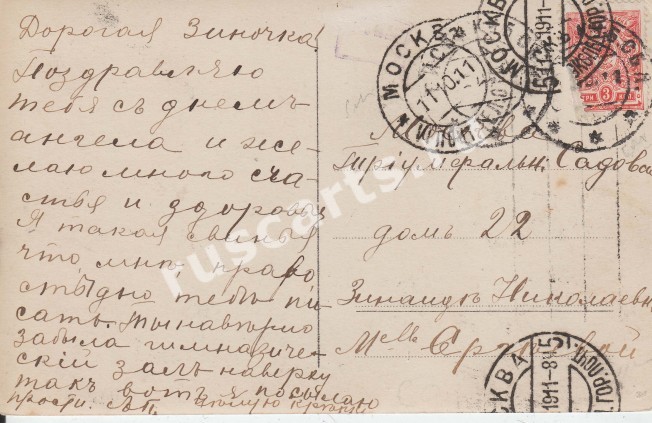 Дорогая Зиночка
Поздравляю
тебя съ днемъ
ангела и же-
лаю много сча-
стья и здоровья
Я такая свинья
что мнѣ, право
стыдно тебѣ пи-
сать. Ты навѣрно
забыла гимназиче-
скій залъ наверху
такъ вотъ я посылаю
прости. цѣлую крѣпко
МОСКВА
11.10.11
МОСКВА
1911
ГОР. ПОЧТ.
ТРИ 3 КОП
Тріумфральн. Садовая
домъ 22
Зинаидѣ Николаевнѣ
M-elle
МОСКВА
1911-8
ГОР. ПОЧТ.
ruscarts.ru